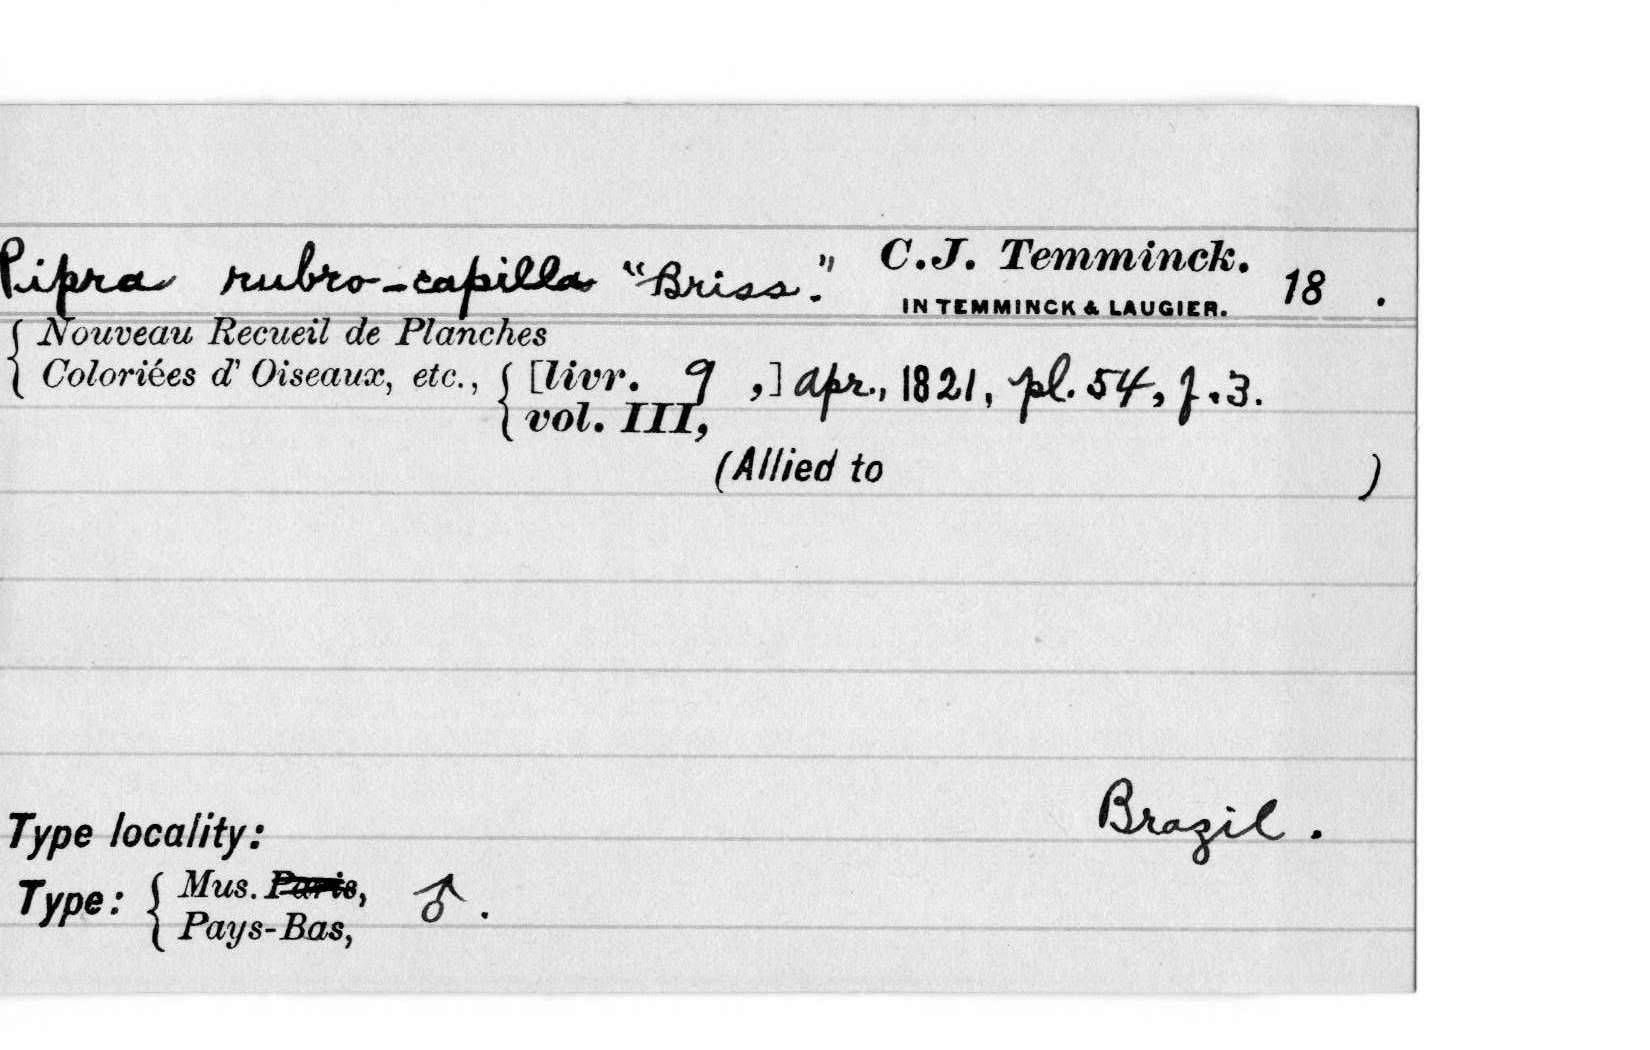 Pipra rubro-capilla "Briss." C.J. Temminck. 18 .
IN TEMMINCK & LAUGIER.
{ Nouveau Recueil de Planches
Coloriées d' Oiseaux, etc., { [livr. 9 ,] Apr., 1821, pl. 54, f. 3.
vol. III,
(Allied to )
Brazil .
Type locality:
Type: { Mus. Paris, ♂ .
Pays-Bas,